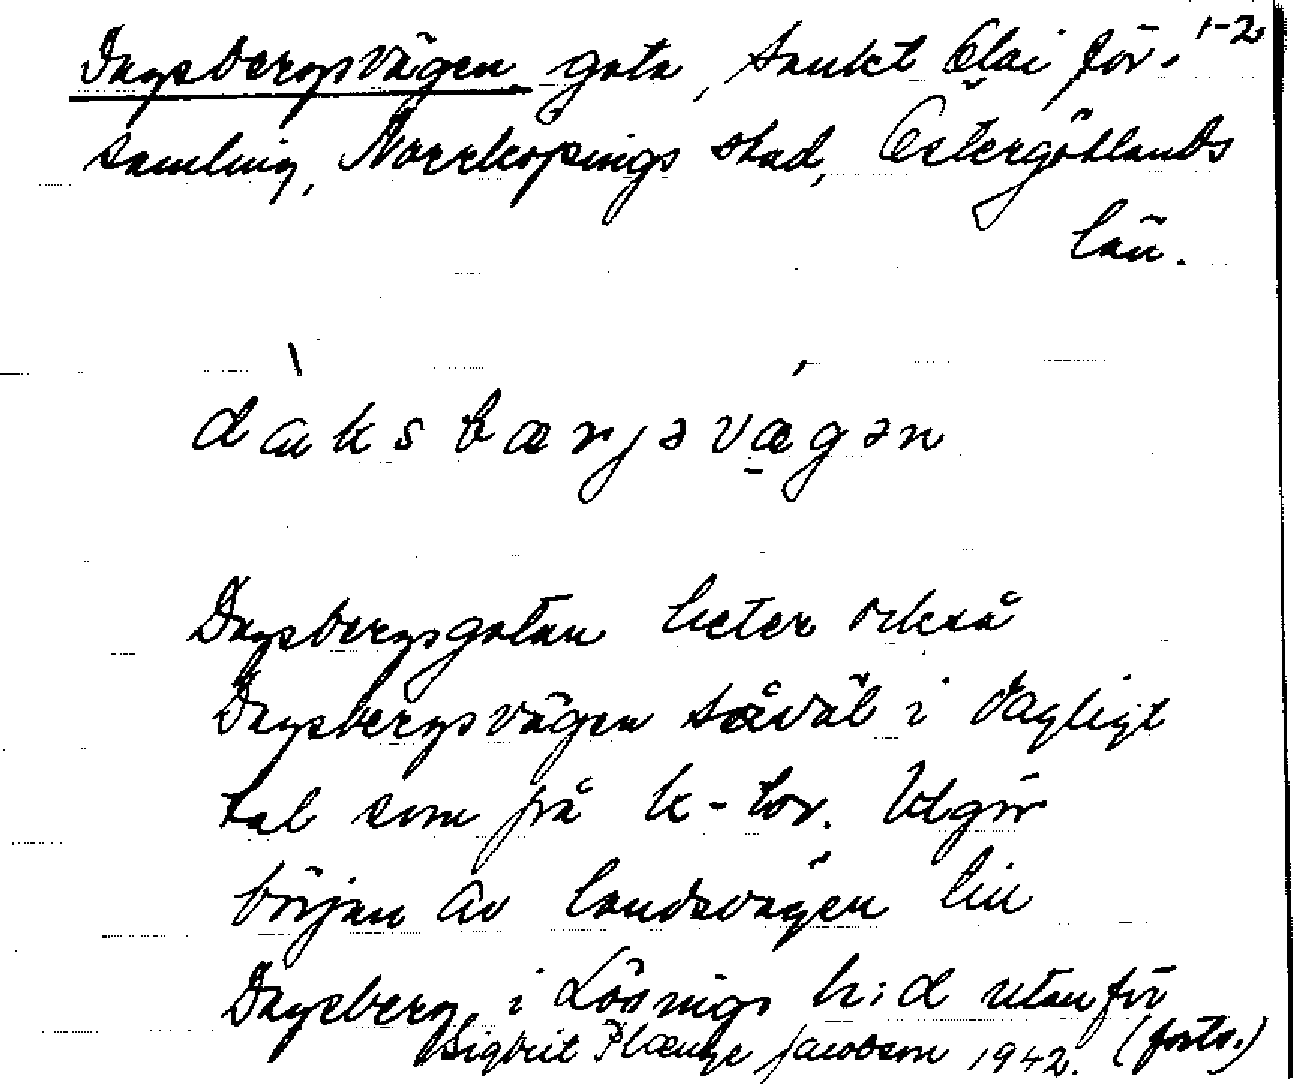 1-2
Dagsbergsvägen gata, Sankt Olai för-
samling, Norrköpings stad, Östergötlands
län.
dàksbærjsvægən
Dagsbergsgatan heter också
Dagsbergsvägen såväl i dagligt
tal som på k-tor. Utgör
början av landsvägen till
Dagsberg i Lösings h:d utanför
Sigbrit Plænge Jacobson 1942. (forts.)